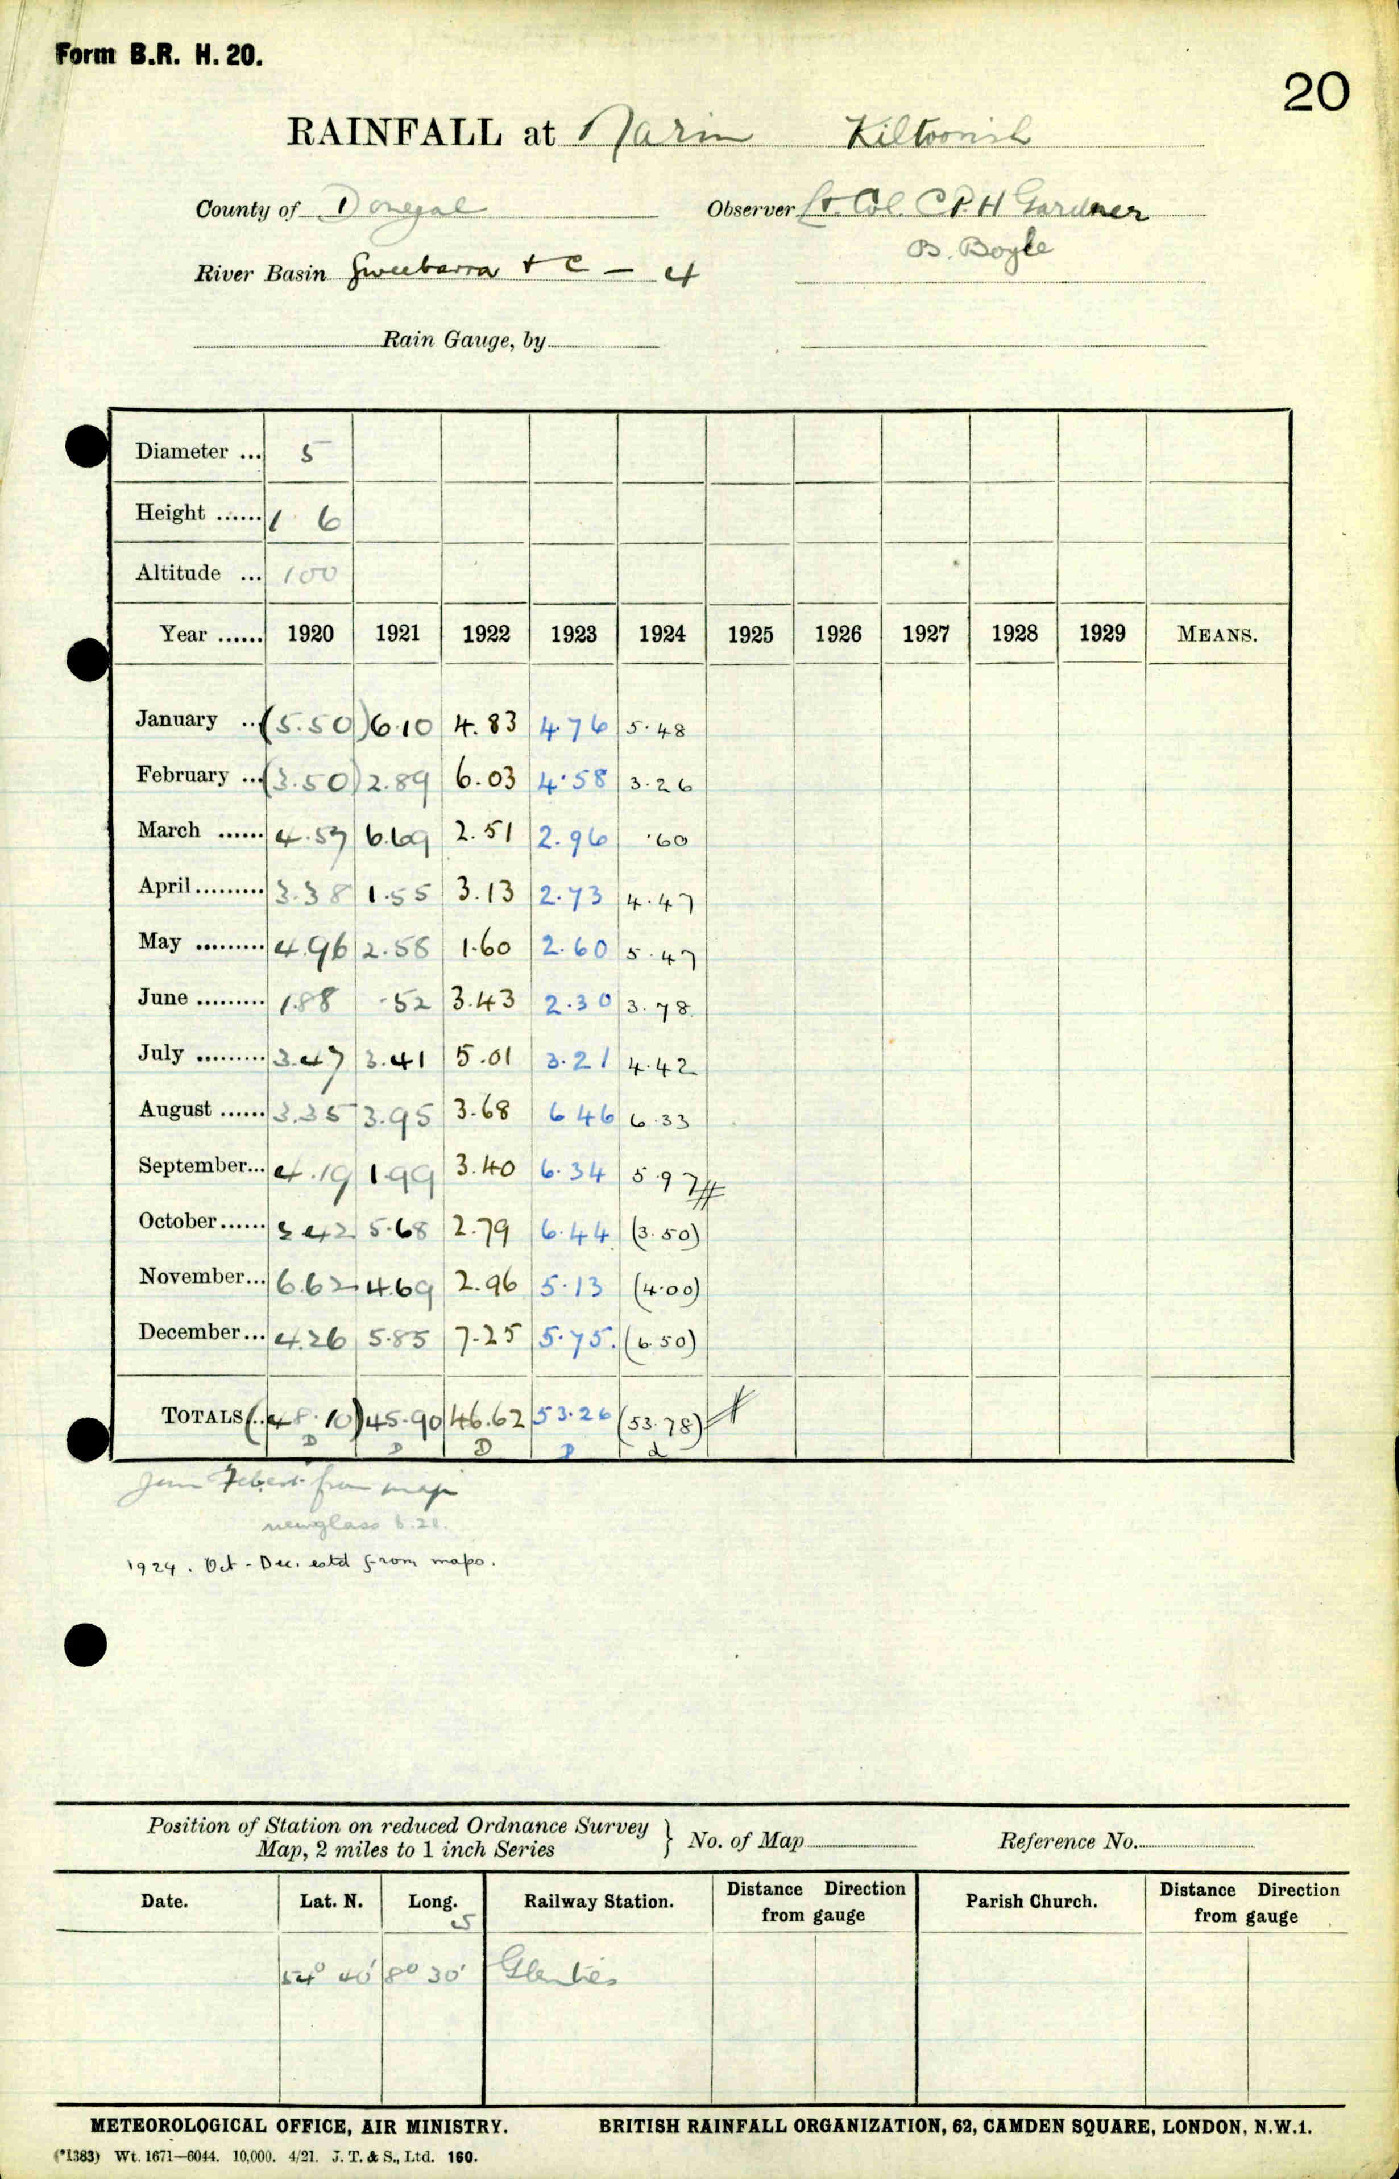 Form B.R. H. 20.
20
RAINFALL at Narin Kiltoorish
County of Donegal Observer Lt. Col. C.P.H Gardner
B. Boyle
River Basin Gweebarra + C — 4
Rain Gauge, by
Diameter ... 5
Height ...... 1 6
Altitude ... 100
Year ...... 1920 1921 1922 1923 1924 1925 1926 1927 1928 1929 MEANS.
January .. (5.50) 6.10 4.83 4.76 5.48
February ... (3.50) 2.89 6.03 4.58 3.26
March ...... 4.57 6.69 2.51 2.96 .60
April ......... 3.38 1.55 3.13 2.73 4.47
May ......... 4.96 2.58 1.60 2.60 5.47
June ......... 1.88 .52 3.43 2.30 3.78
July ......... 3.47 3.41 5.01 3.21 4.42
August ...... 3.35 3.95 3.68 6 46 6.33
September... 4.19 1.99 3.40 6.34 5.97 #
October ...... 2 42 5.68 2.79 6.44 (3.50)
November... 6.62 4.69 2.96 5.13 (4.00)
December... 4.26 5.85 7.25 5.75. (6.50)
TOTALS .. (48.10) 45.90 46.62 53.26 (53.78) #
D D D D d
Jan Feb est from map
new glass 6.20.
1924. Oct - Dec. estd from maps.
Position of Station on reduced Ordnance Survey
Map, 2 miles to 1 inch Series } No. of Map Reference No.
Date. Lat. N. Long. Railway Station. Distance Direction from gauge Parish Church. Distance Direction from gauge
5
54° 40' 8° 30' Glenties
METEOROLOGICAL OFFICE, AIR MINISTRY. BRITISH RAINFALL ORGANIZATION, 62, CAMDEN SQUARE, LONDON, N.W.1.
(*1383) Wt. 1671—6044. 10,000. 4/21. J. T. & S., Ltd. 160.